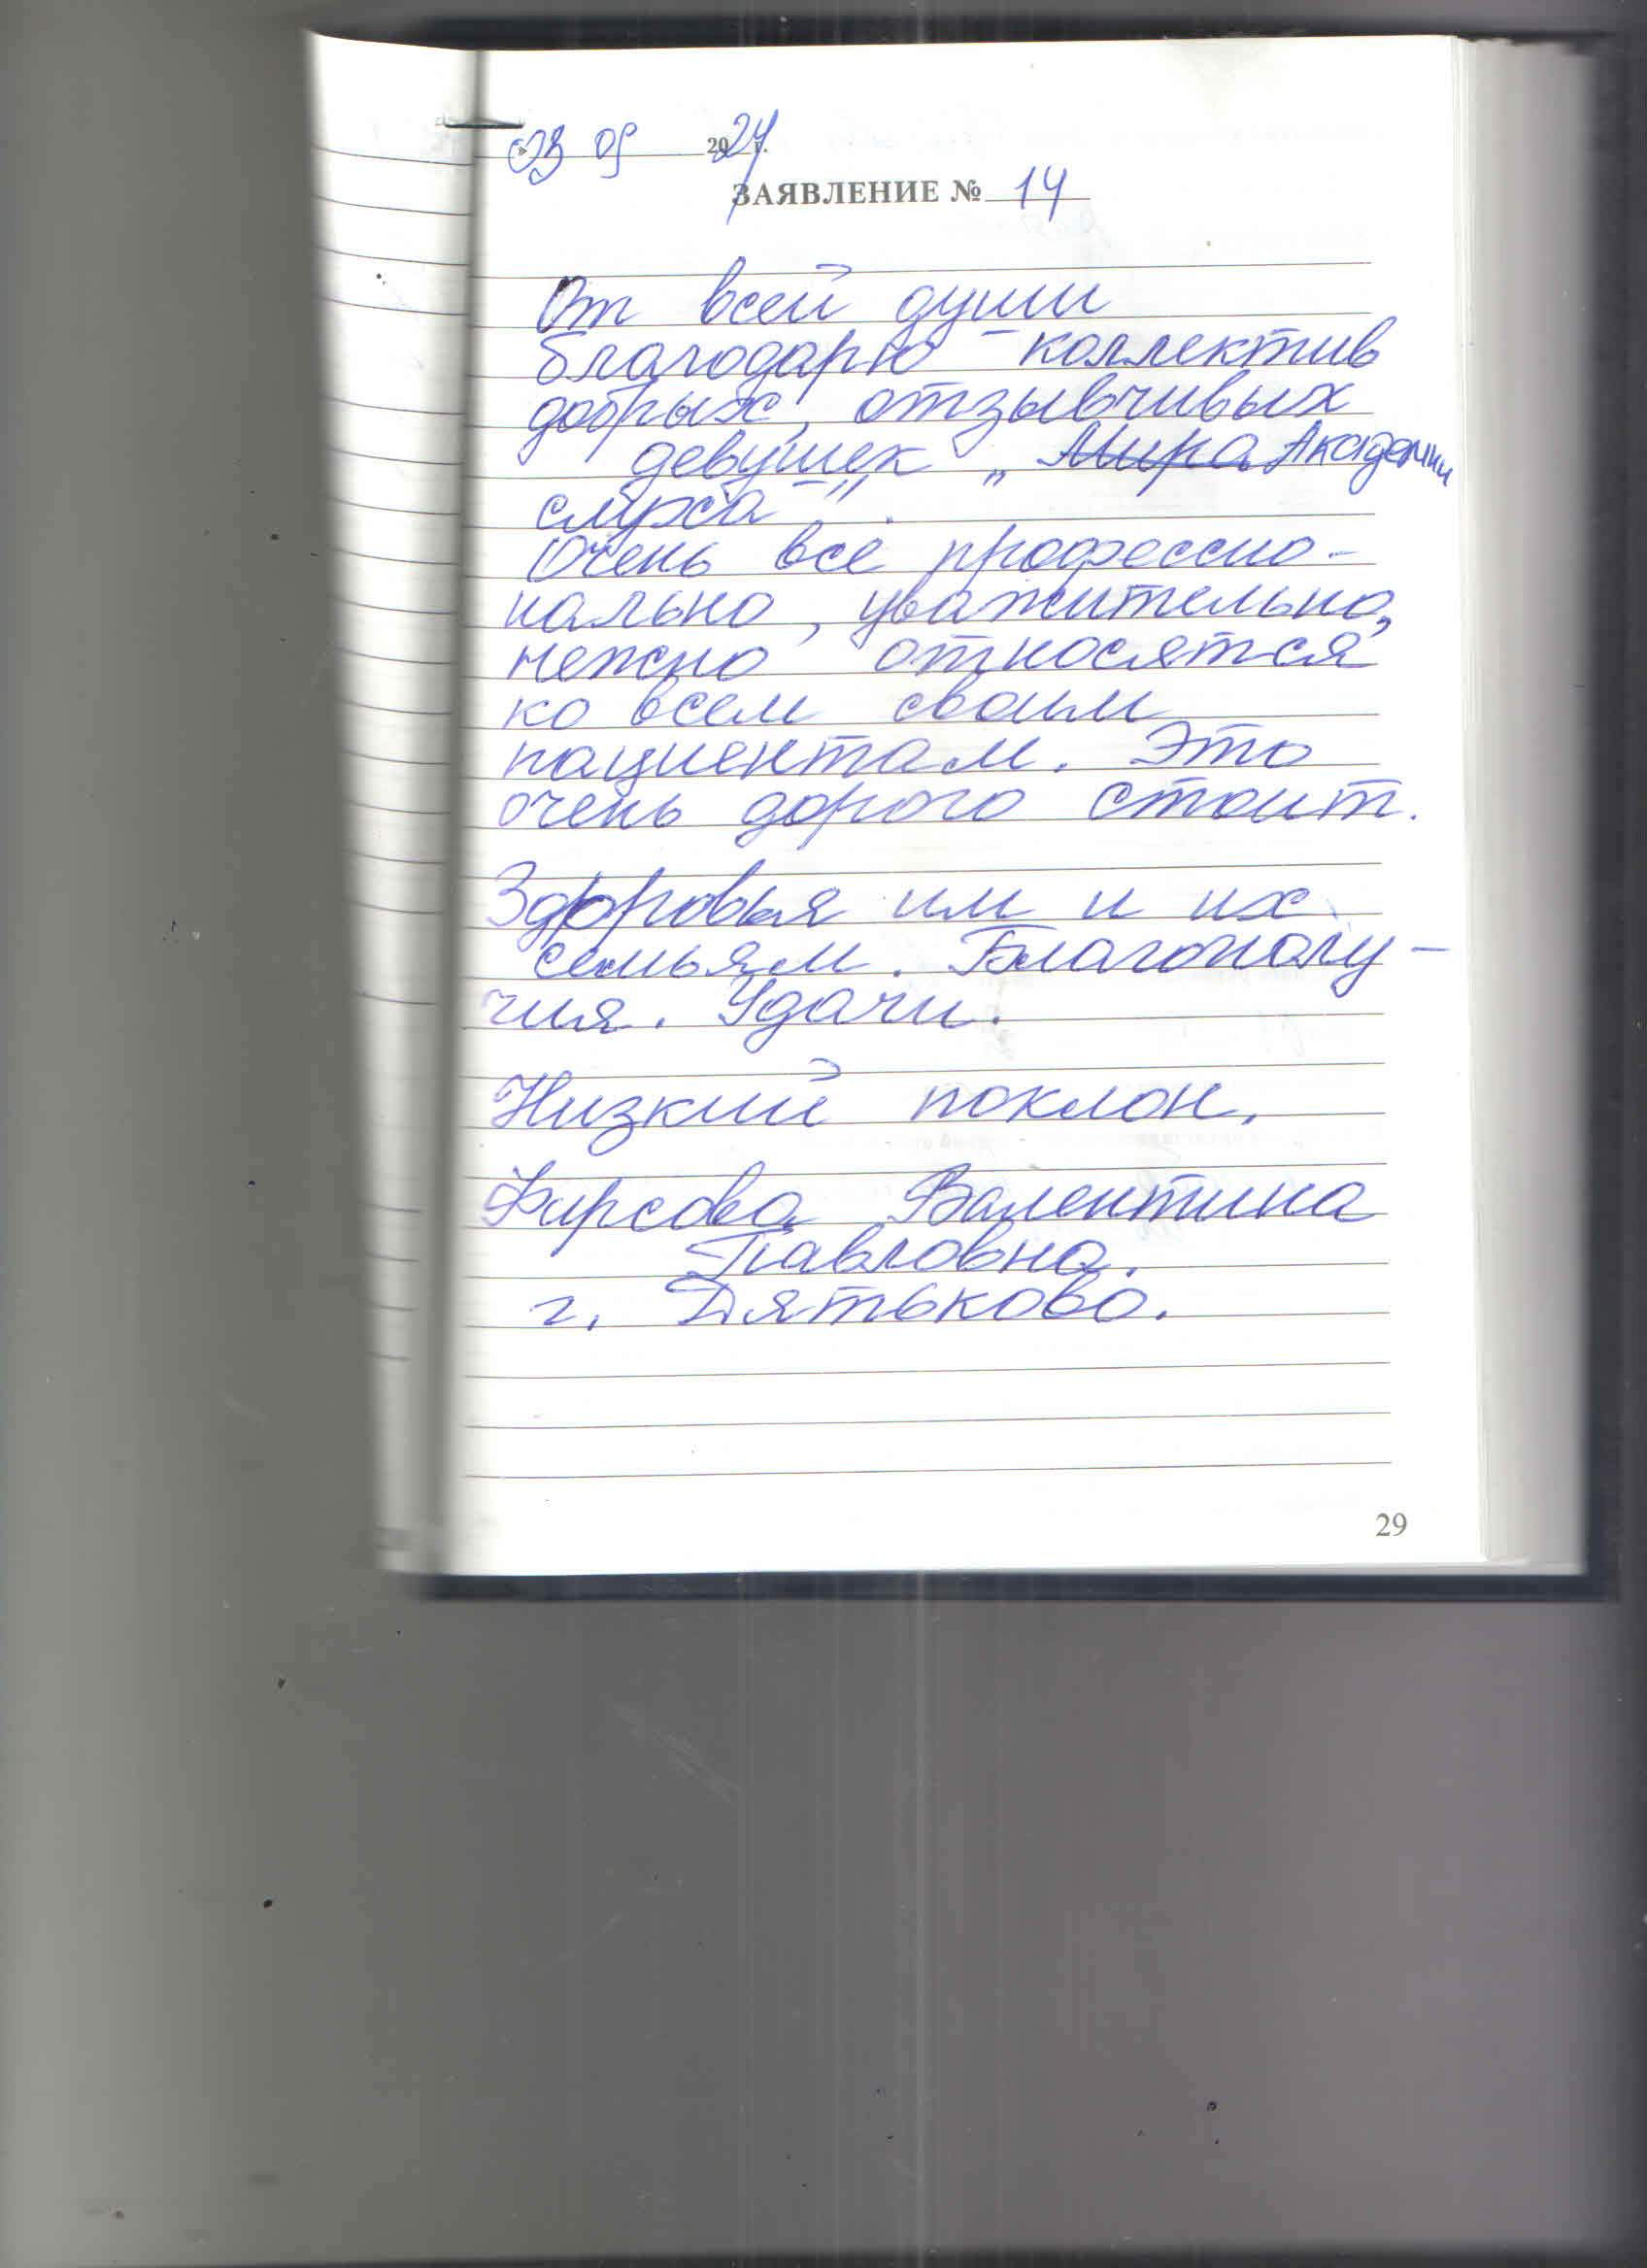 03 05 2024 г.
ЗАЯВЛЕНИЕ № 14
От всей души
благодарю коллектив
добрых, отзывчивых
девушек „Мира Академии
слуха".
Очень все профессио-
нально, уважительно,
нежно относятся
ко всем своим
пациентам. Это
очень дорого стоит.
Здоровья им и их
семьям. Благополу-
чия. Удачи.
Низкий поклон,
Фирсова Валентина
Павловна.
г. Дятьково.
29